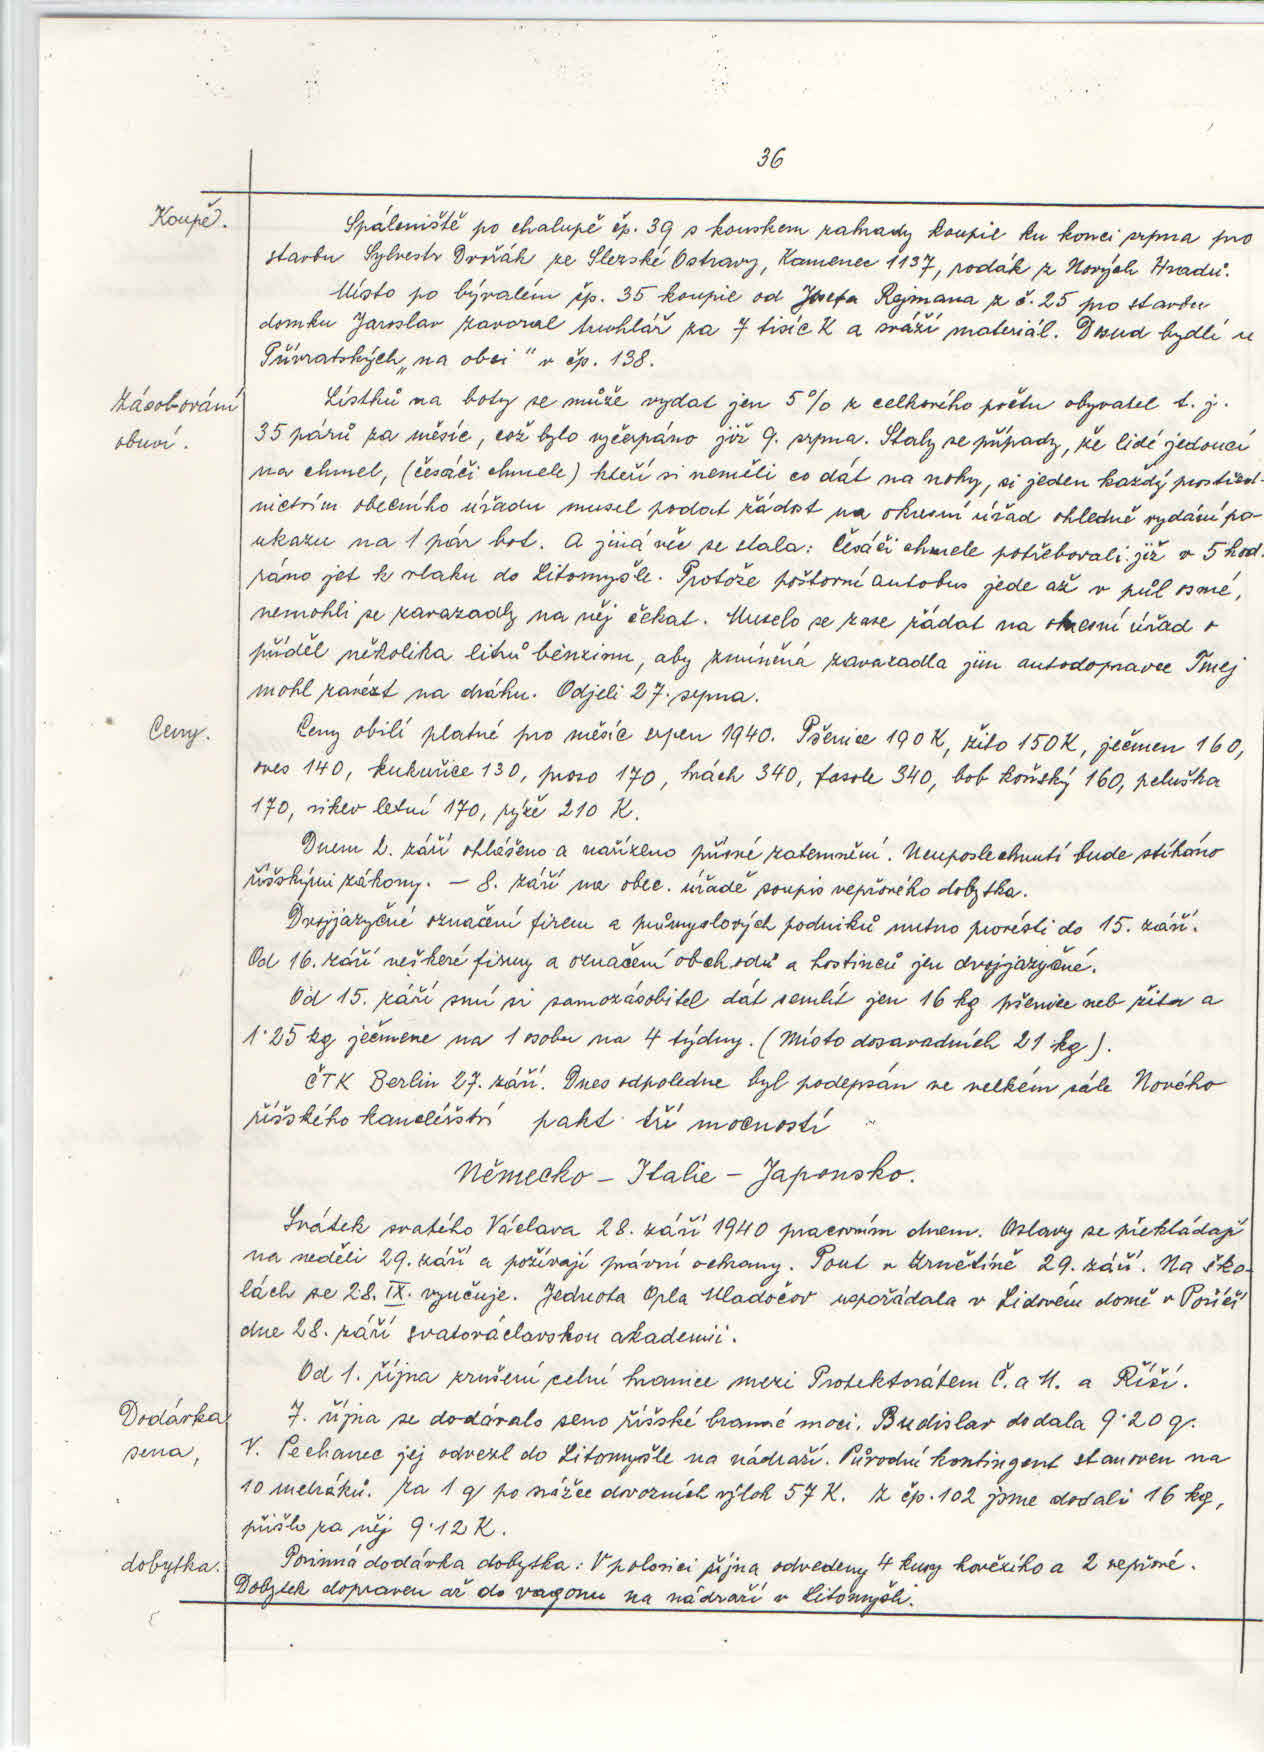 36
Koupě.
Spáleniště po chalupě čp. 39 s kouskem zahrady koupil ku konci srpna pro
stavbu Sylvestr Dvořák ze Slezské Ostravy, Kamenec 1137, rodák z Nových Hradů.
Místo po bývalém čp. 35 koupil od Josefa Rejmana z č. 25 pro stavbu
domku Jaroslav Zavoral truhlář za 7 tisíc K a sváží materiál. Dosud bydlí u
Půvratských „na obci" v čp. 138.
Zásobování
obuví.
Lístků na boty se může vydat jen 5% z celkového počtu obyvatel t. j.
35 párů za měsíc, což bylo vyčerpáno již 9. srpna. Staly se případy, že lidé jedoucí
na chmel, (česáči chmele) kteří si neměli co dát na nohy, si jeden každý prostřed-
nictvím obecního úřadu musel podat žádost na okresní úřad ohledně vydání po-
ukazu na 1 pár bot. A jiná věc se stala: Česáči chmele potřebovali již v 5 hod.
ráno jet k vlaku do Litomyšle. Protože poštovní autobus jede až v půl osmé,
nemohli se zavazadly na něj čekat. Muselo se zase žádat na okresní úřad o
příděl několika litrů benzinu, aby zmíněná zavazadla jim autodopravce Tmej
mohl zavézt na dráhu. Odjeli 27. srpna.
Ceny.
Ceny obilí platné pro měsíc srpen 1940. Pšenice 190 K, žito 150 K, ječmen 160,
oves 140, kukuřice 130, proso 170, hrách 340, fasole 340, bob koňský 160, peluška
170, vikev letní 170, rýže 210 K.
Dnem 2. září ohlášeno a nařízeno přísné zatemnění. Neuposlechnutí bude stíháno
říšskými zákony. – 8. září na obec. úřadě soupis vepřového dobytka.
Dvojjazyčné označení firem a průmyslových podniků nutno provésti do 15. září.
Od 16. září veškeré firmy a označení obchodů a hostinců jen dvojjazyčné.
Od 15. září smí si samozásobitel dát semlít jen 16 kg pšenice neb žita a
1·25 kg ječmene na 1 osobu na 4 týdny. (Místo dosavadních 21 kg).
ČTK Berlin 27. září. Dnes odpoledne byl podepsán ve velkém sále Nového
říšského kancléřství pakt tří mocností
Německo – Italie – Japonsko.
Svátek svatého Václava 28. září 1940 pracovním dnem. Oslavy se překládají
na neděli 29. září a požívají právní ochrany. Pout v Zrnětíně 29. září. Na ško-
lách se 28. IX. vyučuje. Jednota Orla Mladočov uspořádala v Lidovém domě v Poříčí
dne 28. září svatováclavskou akademii.
Od 1. října zrušení celní hranice mezi Protektorátem Č. a M. a Říší.
Dodávka
sena,
7. října se dodávalo seno říšské branné moci. Budislav dodala 9·20 q.
V. Pechanec jej odvezl do Litomyšle na nádraží. Původní kontingent stanoven na
10 metráků. Za 1 q po srážce dovozních výloh 57 K. Z čp. 102 jsme dodali 16 kg,
přišlo za něj 9·12 K.
dobytka.
Povinná dodávka dobytka: V polovici října odvedeny 4 kusy hovězího a 2 vepřové.
Dobytek dopraven až do vagonu na nádraží v Litomyšli.